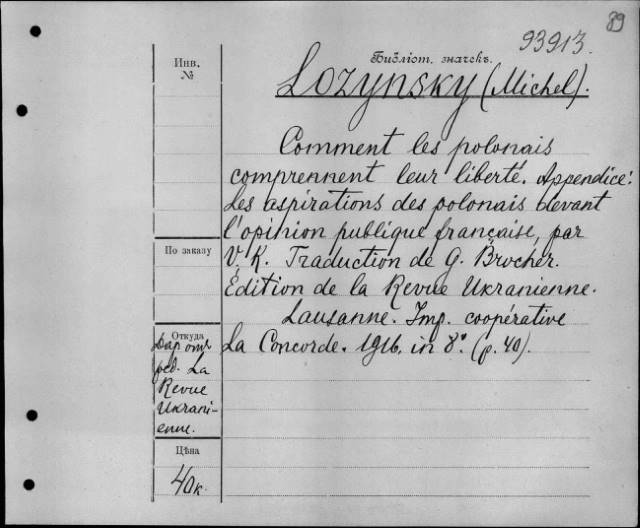 89
93913.
Библіот. значекъ.
Инв.
№
Lozynsky (Michel).
Comment les polonais
comprennent leur liberté. Appendice:
Les aspirations des polonais devant
l'opinion publique française, par
По заказу
V. K. Traduction de G. Brocher.
Édition de la Revue Ukranienne.
Lausanne. Imp. coopérative
La Concorde. 1916. in 8º. (p. 40).
Откуда
Дар отъ
ред. La
Revue
Ukrani-
enne.
Цѣна
40к.